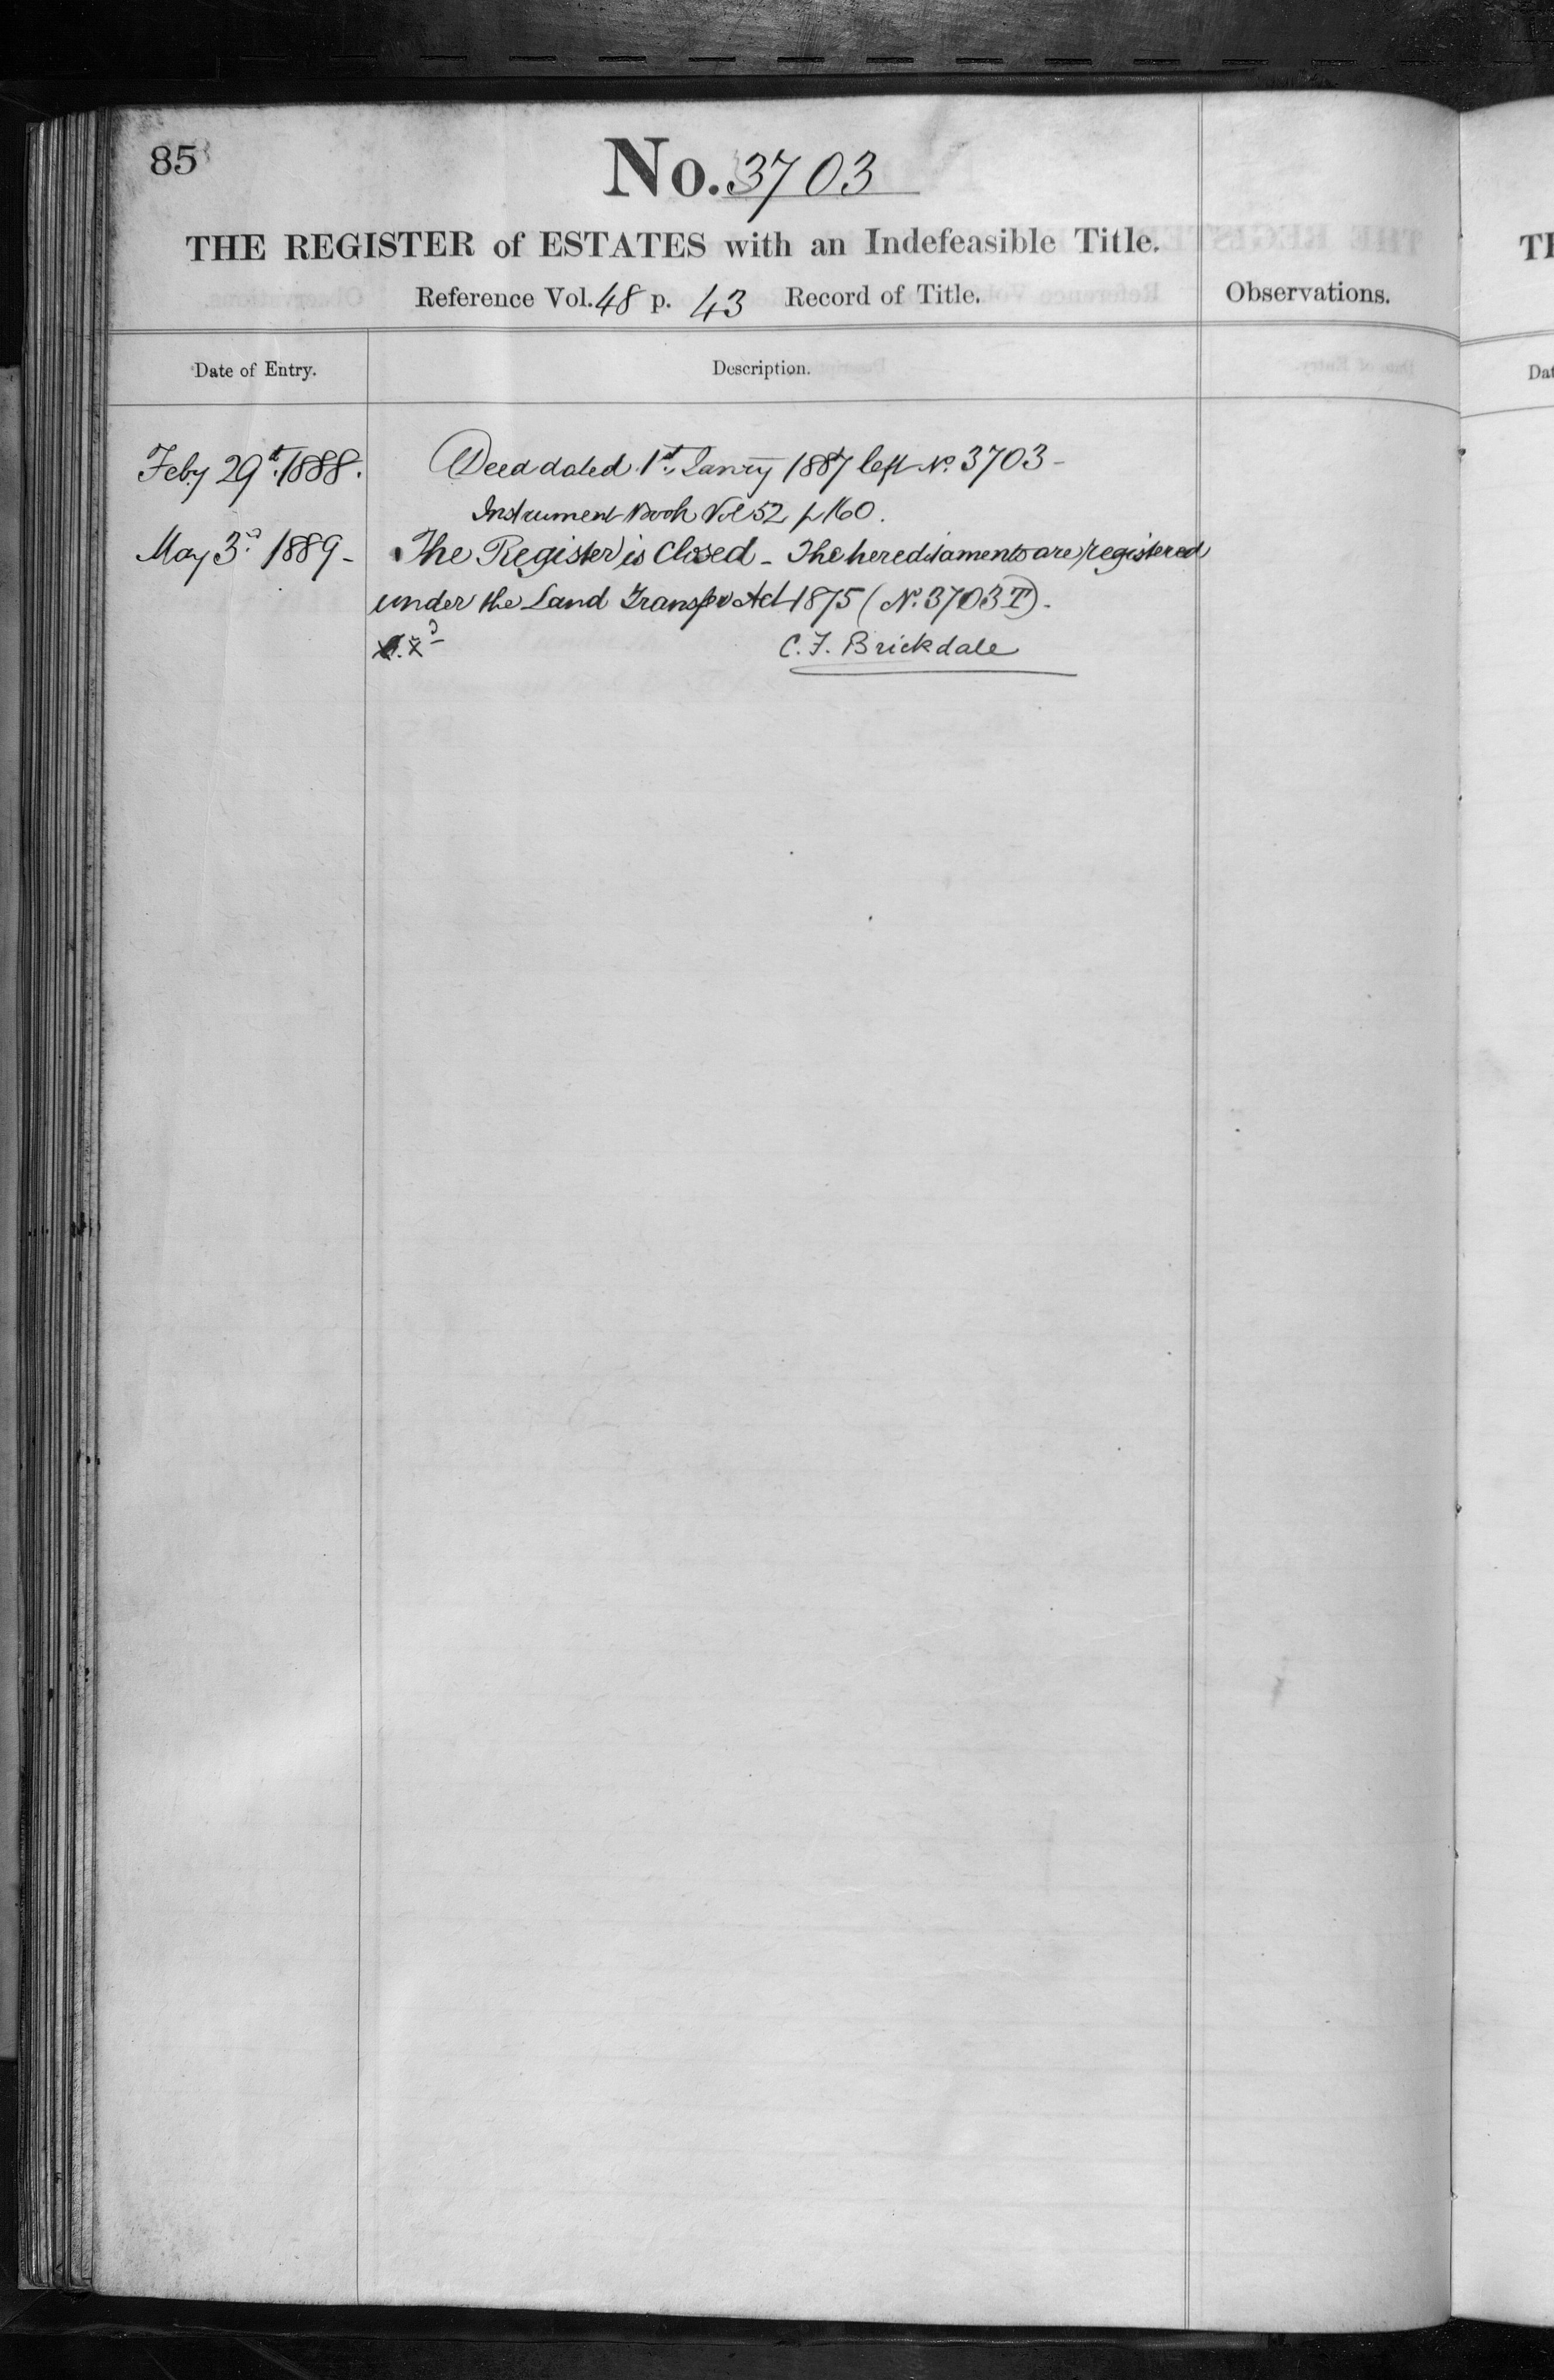 85
No. 3703
THE REGISTER of ESTATES with an Indefeasible Title.
Reference Vol. 48 p. 43 Record of Title.
Observations.
Date of Entry.
Description.
Feby 29th 1888.
Deed dated 1st Janry 1887 left No. 3703 -
Instrument Book Vol 52 p 160.
May 3d 1889 -
The Register is Closed - The hereditaments are registered
under the Land Transfer Act 1875 (No. 3703 T).
C. F. Brickdale